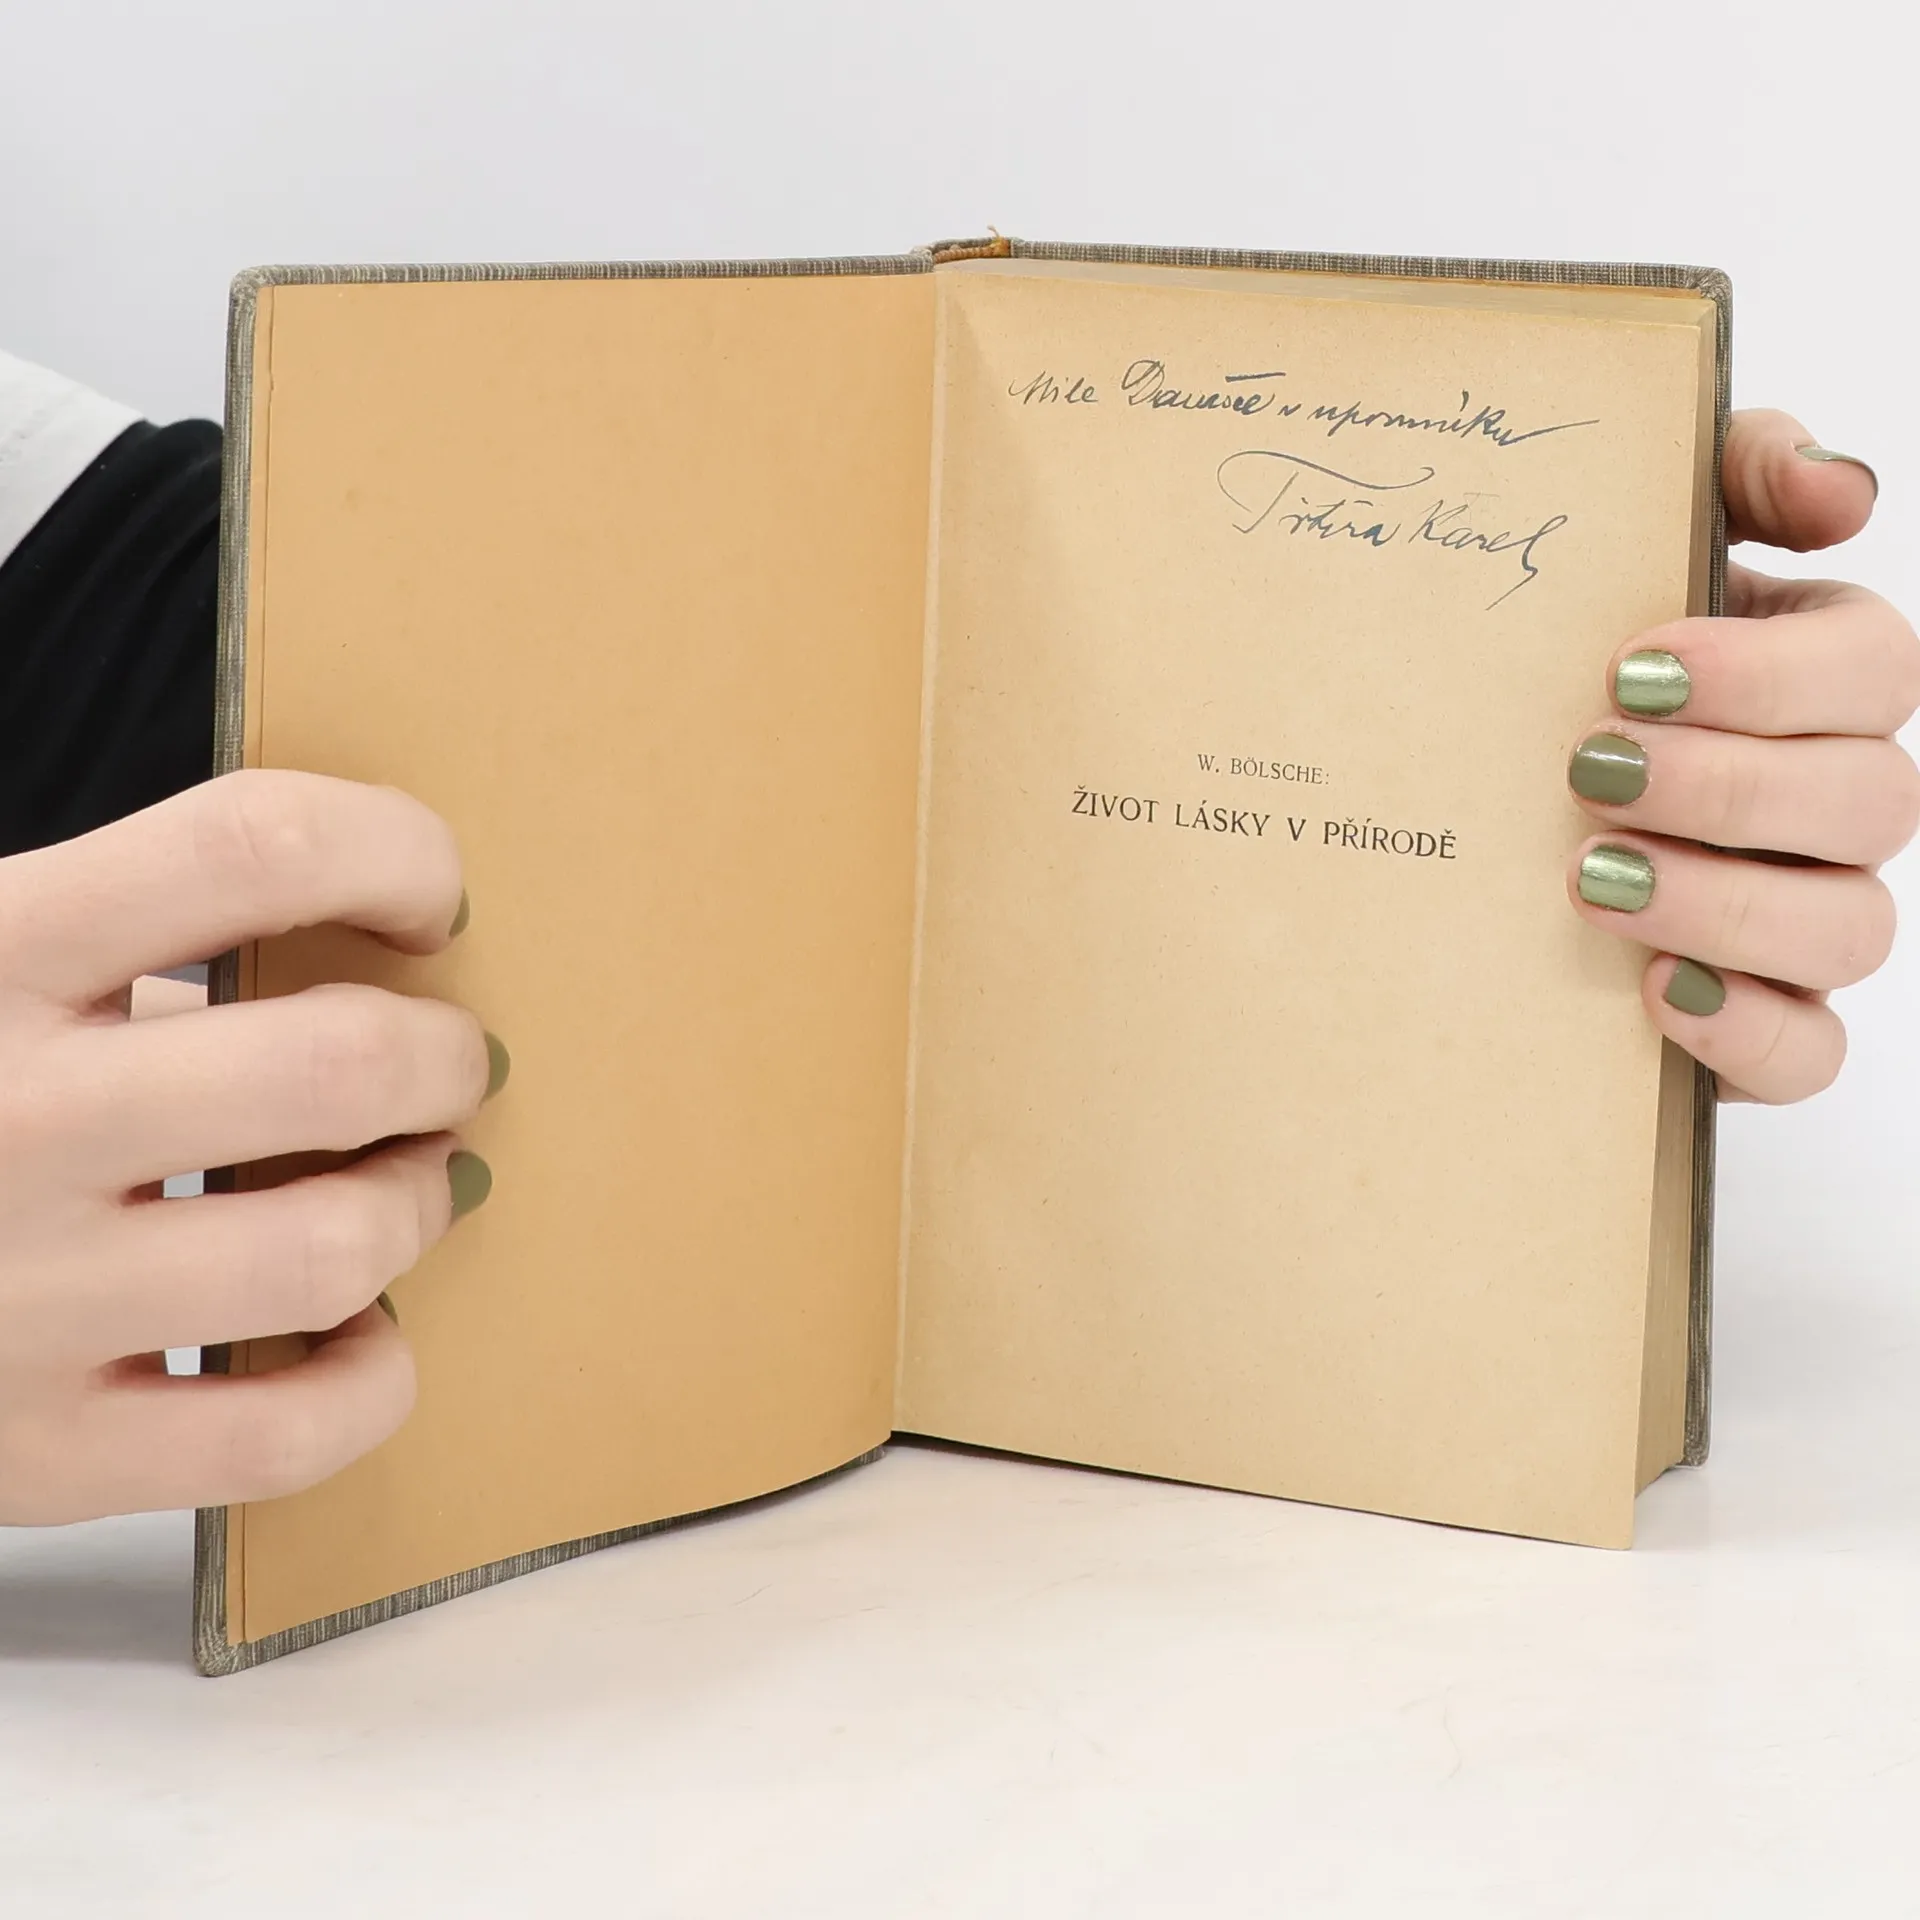 Mile Danuše v upomínku
Trtíra Karel
W. BÖLSCHE:
ŽIVOT LÁSKY V PŘÍRODĚ